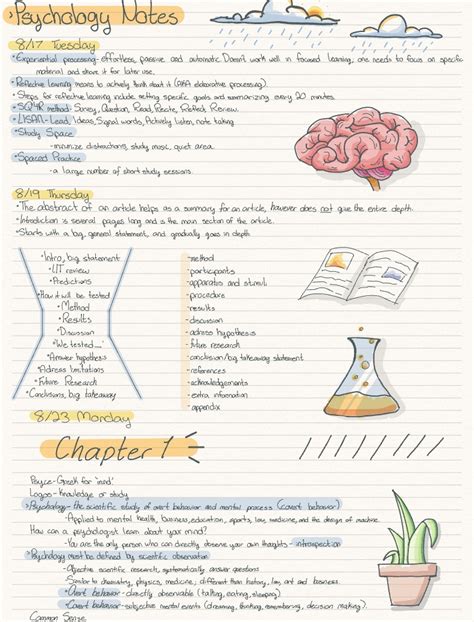 Psychology Notes
8/17 Tuesday
•Experiential processing- effortless, passive and automatic. Doesn't work well in focused learning, one needs to focus on specific
material and store it for later use.
•Reflective learning means to actively think about it (AKA elaborative processing).
•Steps for reflective learning include setting specific goals and summarizing every 20 minutes.
•SQ4R method: Survey, Question, Read, Recite, Reflect, Review.
•LISAN- Lead, Ideas, Signal words, Actively listen, note taking
•Study Space
-minimize distractions, study most, quiet area.
•Spaced Practice
- a large number of short study sessions.
8/19 Thursday
•The abstract of an article helps as a summary for an article, however does not give the entire depth.
•Introduction is several pages long and is the main section of the article.
•Starts with a big, general statement, and gradually goes in depth
•Intro, big statement
•LIT review
•Predictions
•How it will be tested
•Method
•Results
•Discussion
•We tested....
•Answer hypothesis
•Adress limitations
•Future Research
•Conclusions, big takeaway
-method
-participants
-apparatus and stimuli
-procedure
-results
-discussion
-adress hypothesis
- future research
-conclusion/big takeaway statement
-references
-acknowledgements
-extra information
-appendix
8/23 Monday
Chapter 1
Psyce-Greek for 'mind'
Logos- knowledge or study
Psychology- the scientific study of overt behavior and mental process (covert behavior)
-Applied to mental health, business, education, sports, law, medicine, and the design of machines.
How can a psychologist learn about your mind?
-You are the only person who can directly observe your own thoughts- introspection
•Psychology must be defined by scientific observation
-Objective scientific research, systematically answers questions
-Similar to chemistry, physics, medicine; different than history, law, art and business.
•Overt behavior- directly observable (talking, eating, sleeping)
•Covert behavior-subjective mental events (dreaming, thinking, remembering, decision making).
Common Sense